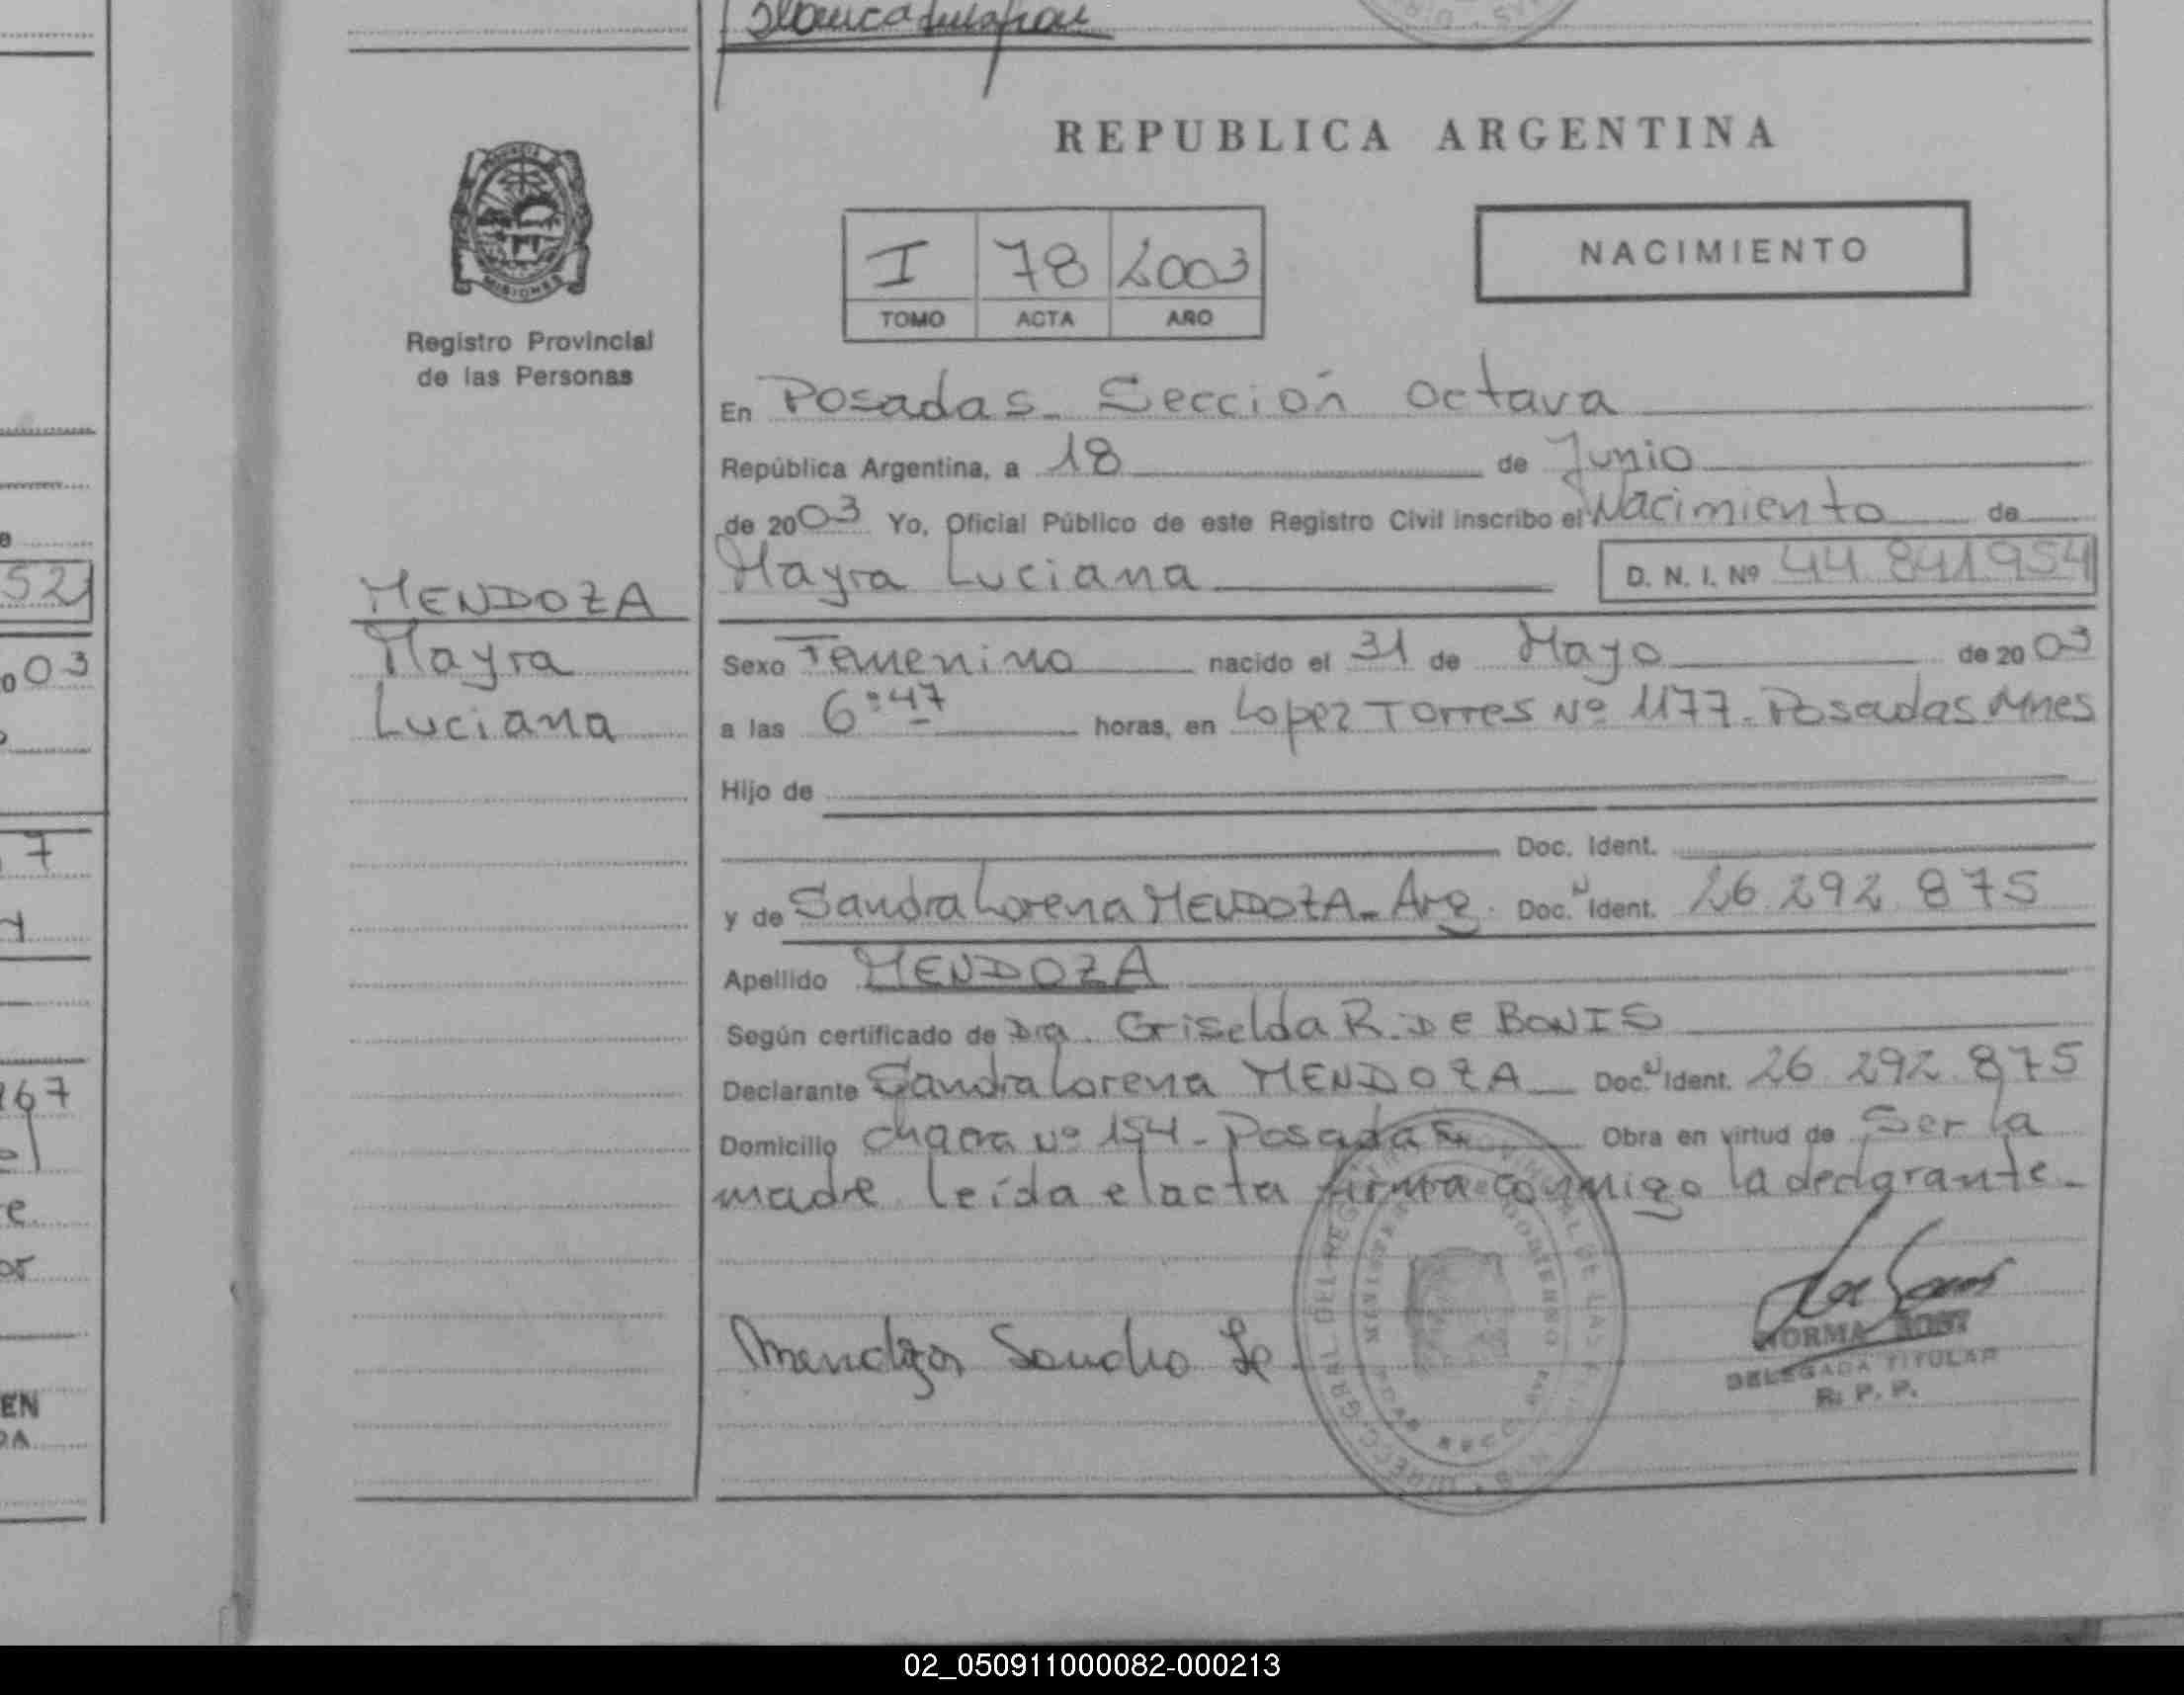 REPUBLICA ARGENTINA
MISIONES
Registro Provincial
de las Personas
I 78 2003
TOMO ACTA AÑO
NACIMIENTO
En Posadas - Sección Octava
República Argentina, a 18 de Junio
de 2003 Yo, Oficial Público de este Registro Civil inscribo el Nacimiento de
Mayra Luciana D. N. I. Nº 44.841.954
MENDOZA
Mayra
Luciana
Sexo Femenino nacido el 31 de Mayo de 2003
a las 6:47 horas, en Lopez Torres Nº 1177 - Posadas Mnes
Hijo de
Doc. Ident.
y de Sandra Lorena MENDOZA - Arg. Doc. N Ident. 26.292.875
Apellido MENDOZA
Según certificado de Dra. Griselda R. De BONIS
Declarante Sandra Lorena MENDOZA Doc. N Ident. 26.292.875
Domicilio chacra Nº 154 - Posadas Obra en virtud de Ser la
madre. leída el acta firma conmigo la declarante.
Mendoza Sandra
NORMA
DELEGADA TITULAR
R. P. P.
52
003
7
167
e
or
EN
DA
02_050911000082-000213